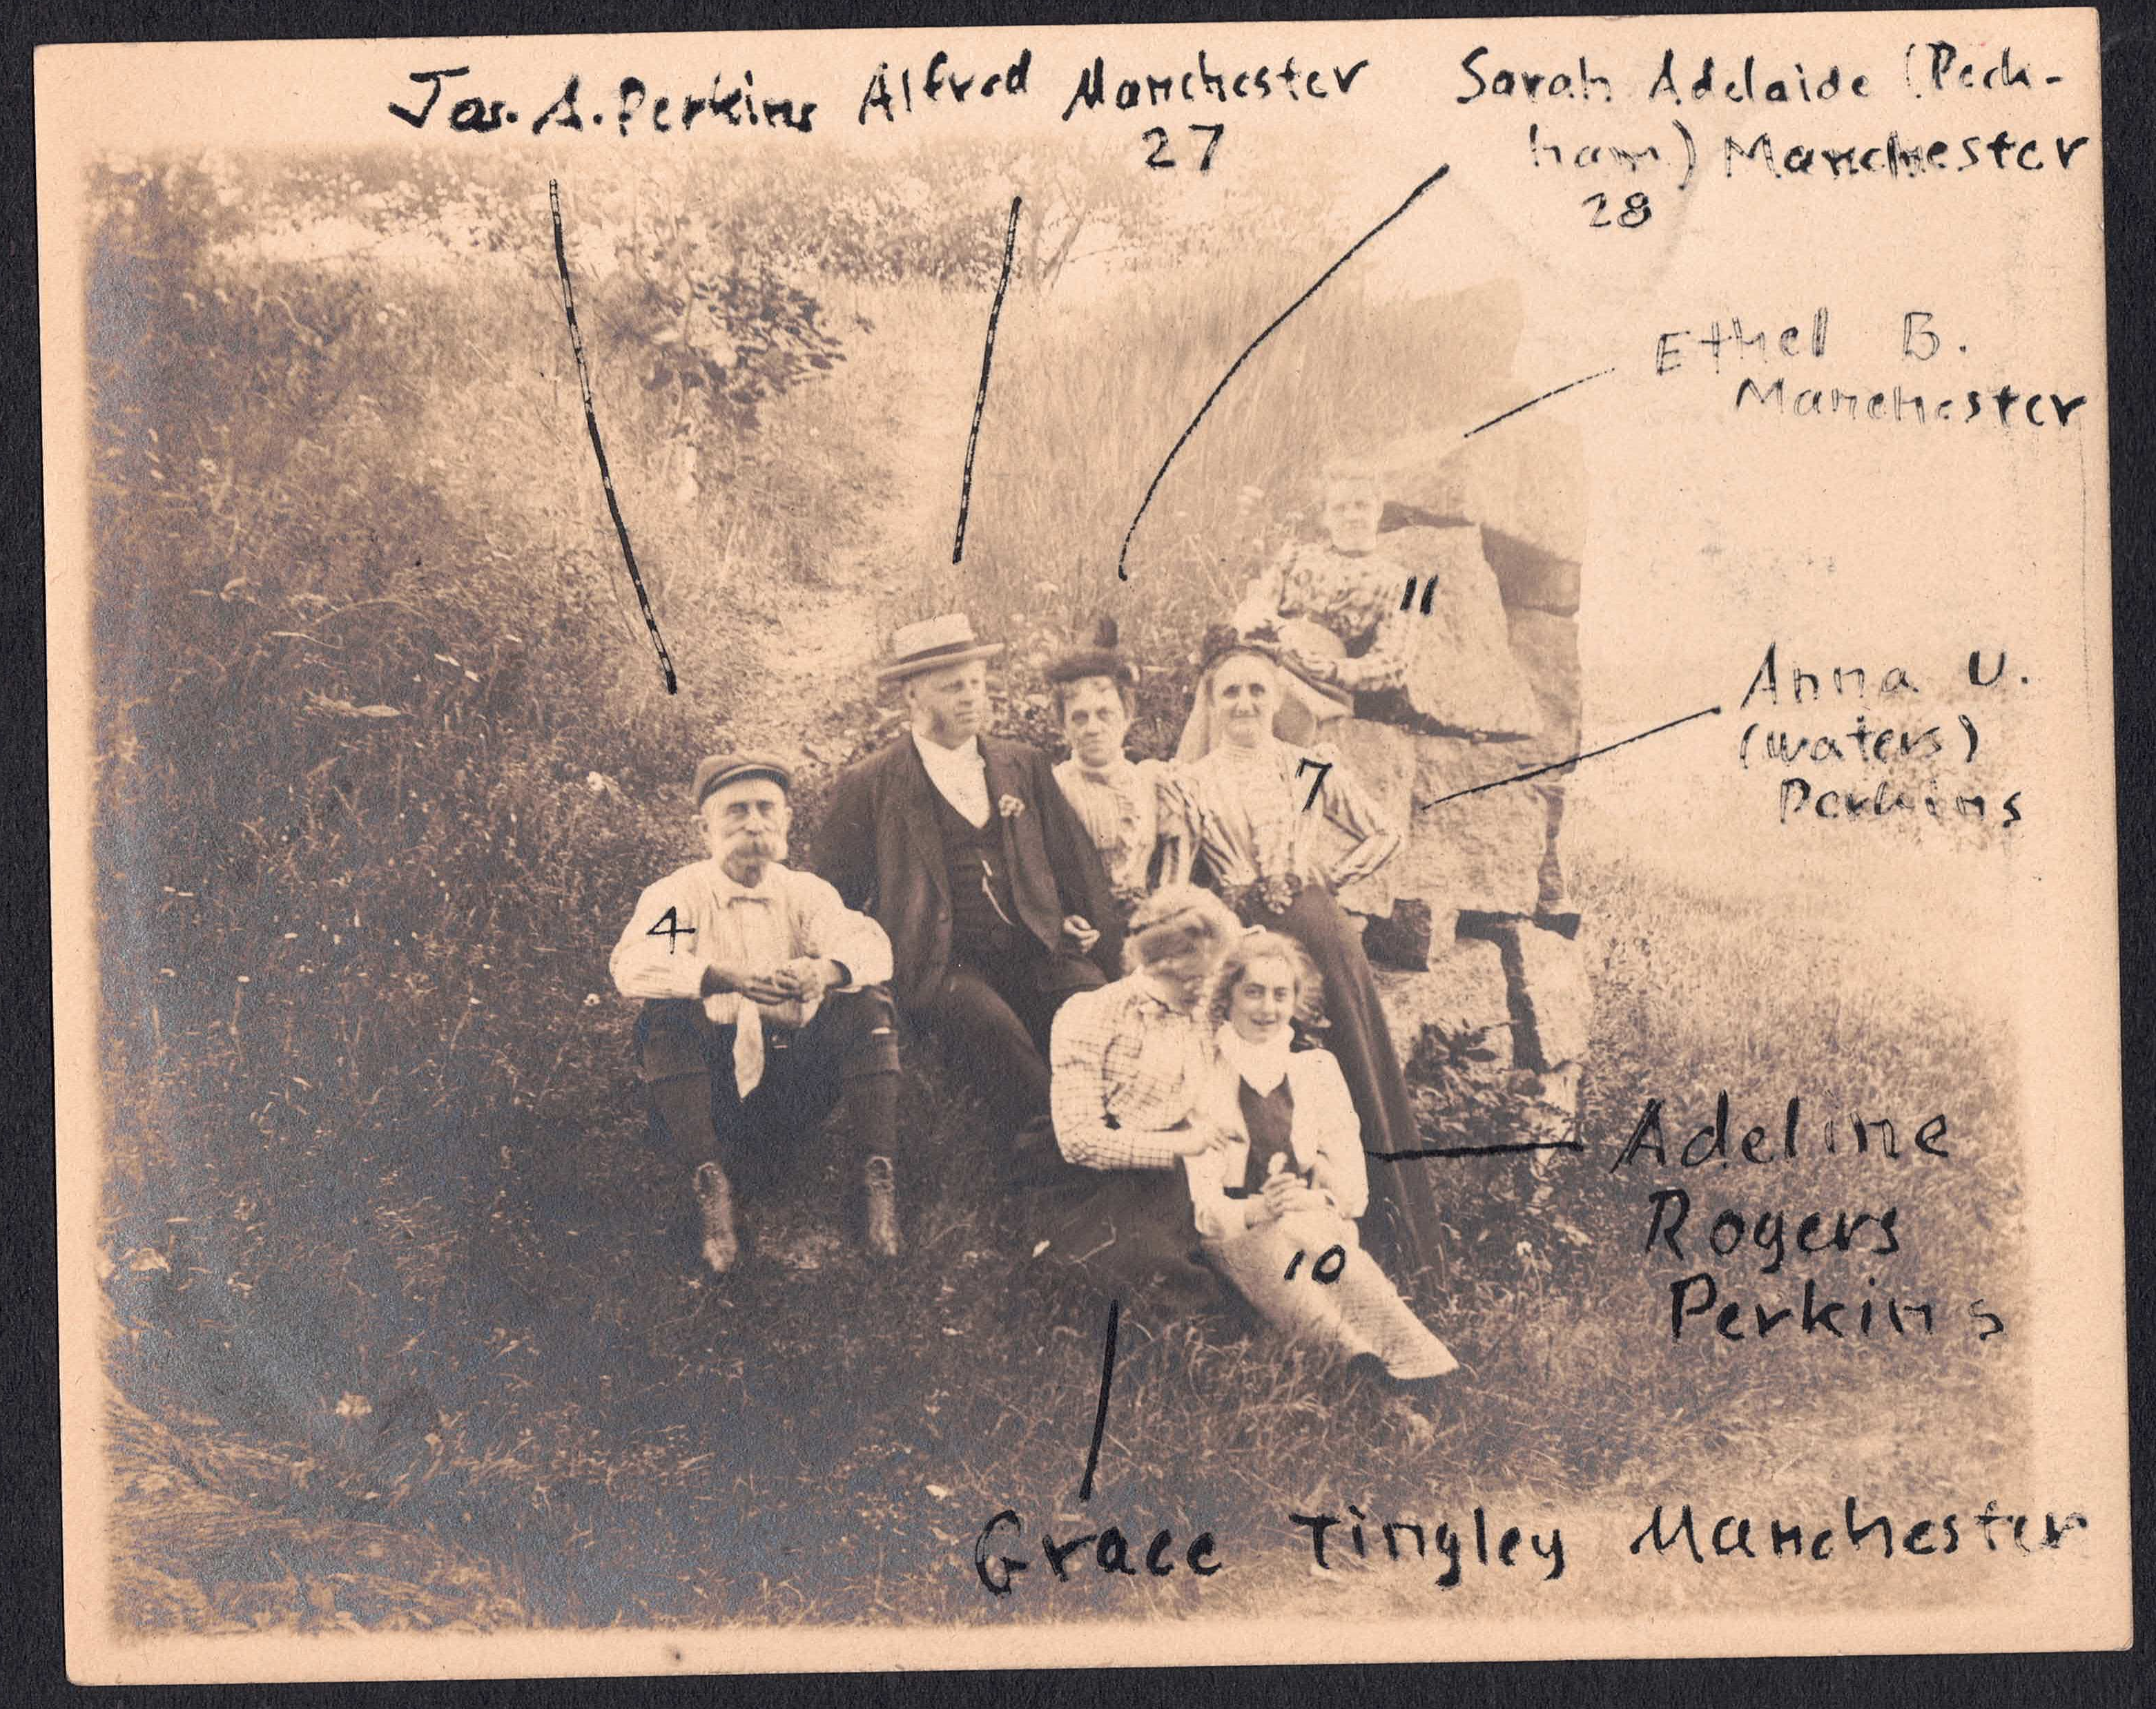 Jas. A. Perkins
Alfred Manchester
27
Sarah Adelaide (Peck-
ham) Manchester
28
Ethel B.
Manchester
11
Anna U.
(Waters)
Perkins
7
4
Adeline
Rogers
Perkins
10
Grace Tingley Manchester